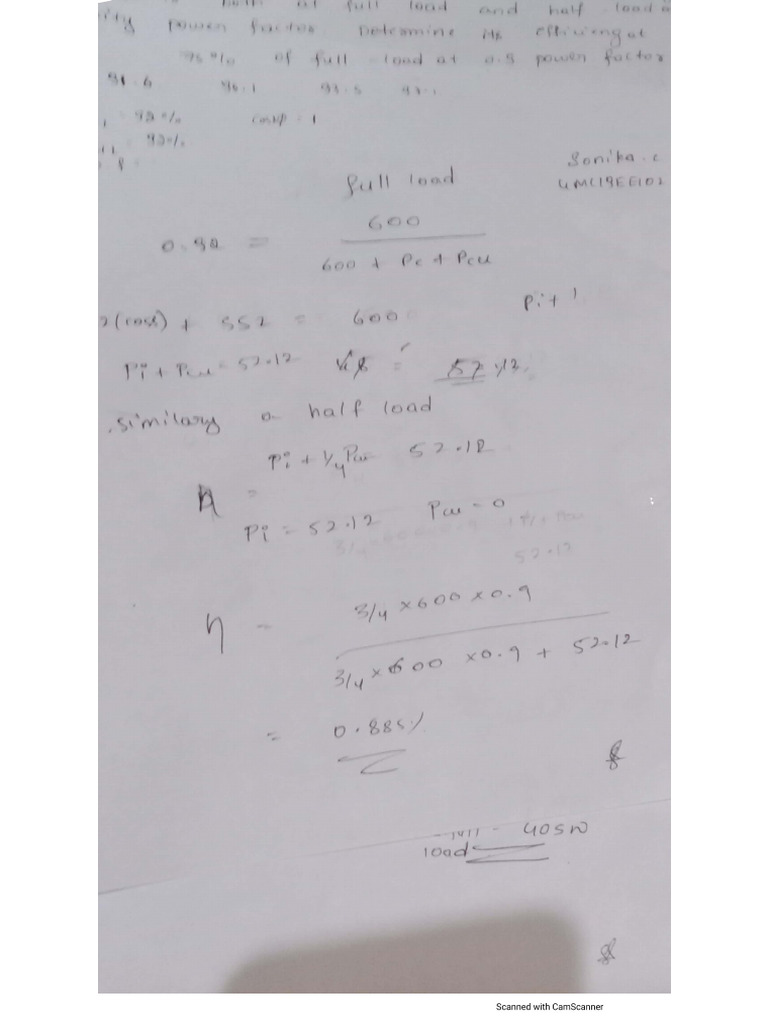 both at full load and half load a
power factor Determine its efficiency at
75% of full load at 0.9 power factor
91.6 90.1 93.5 93.1
92% cosφ = 1
92%
Sonika. C
4MC19EE102
full load
600
0.92 =
600 + Pc + Pcu
(loss) + 552 = 600
Pi +
Pi + Pcu = 52.12 52.12
similary a half load
Pi + 1/4 Pcu 52.12
η =
Pi = 52.12 Pcu = 0
52.12
3/4 × 600 × 0.9
η =
3/4 × 600 × 0.9 + 52.12
= 0.885%
405W
load
Scanned with CamScanner